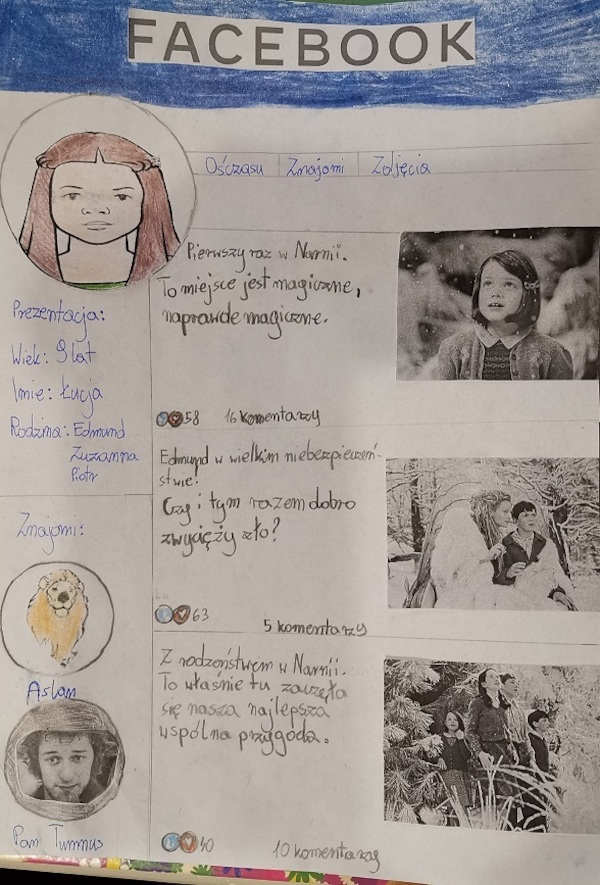 FACEBOOK
Ośczasu Znajomi Zdjęcia
Prezentacja:
Wiek: 9 lat
Imie: Łucja
Rodzina: Edmund
Zuzanna
Piotr
Znajomi:
Aslan
Pan Tumnus
Pierwszy raz w Narnii.
To miejsce jest magiczne,
naprawde magiczne.
58 16 komentarzy
Edmund w wielkim niebezpieczeń-
stwie!
Czy i tym razem dobro
zwycięży zło?
63 5 komentarzy
Z rodzeństwem w Narnii.
To właśnie tu zaczęła
się nasza najlepsza
wspólna przygoda.
40 10 komentarzy